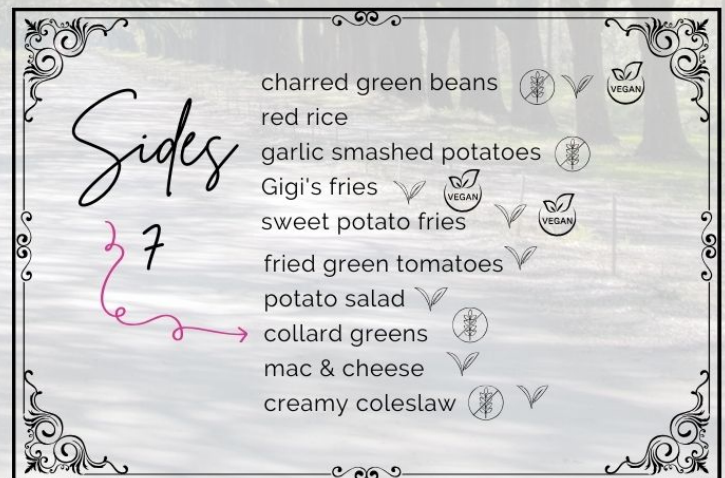 Sides
7
charred green beans VEGAN
red rice
garlic smashed potatoes
Gigi's fries VEGAN
sweet potato fries VEGAN
fried green tomatoes
potato salad
collard greens
mac & cheese
creamy coleslaw